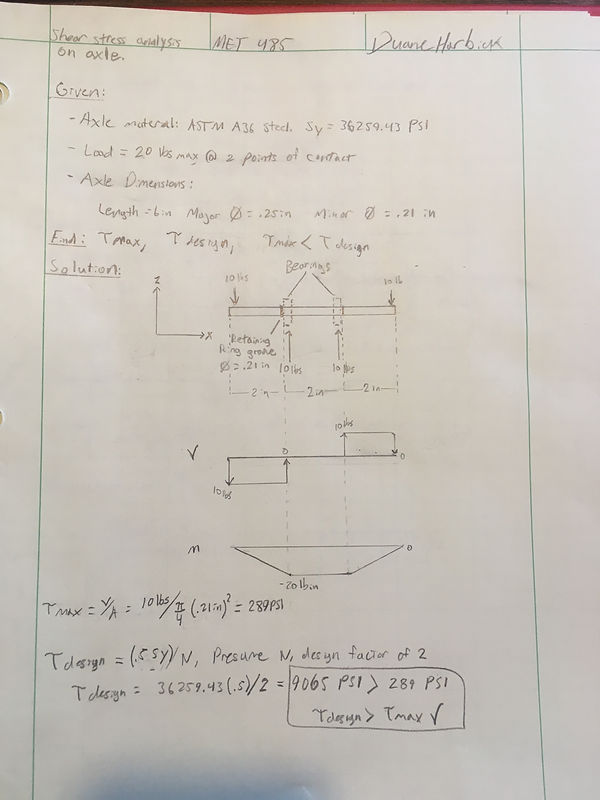 Shear stress analysis on axle. MET 485 Duane Harbick
Given:
- Axle material: ASTM A36 steel. Sy = 36259.43 PSI
- Load = 20 lbs max @ 2 points of contact
- Axle Dimensions:
Length = 6in Major Ø = .25in Minor Ø = .21 in
Find: τmax, τdesign, τmax < τdesign
Solution:
Bearings
z
10 lbs
10 lb
x
Retaining
Ring grove
Ø = .21 in
10 lbs
10 lbs
2 in
2in
2 in
10 lbs
V
0
0
10 lbs
M
0
-20 lb in
τmax = V/A = 10 lbs/π/4 (.21in)² = 289PSI
τdesign = (.5 Sy)/N, Presume N, design factor of 2
τdesign = 36259.43(.5)/2 = 9065 PSI > 289 PSI
τdesign > τmax √